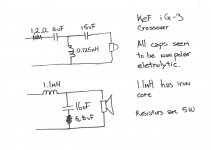 1.2Ω 6uF 15uF
0.125mH
KEF iQ-3
Crossover
All caps seem
to be nonpolar
eletrolytic.
1.1mH
16uF
1.1mH has iron
core
Resistors are 5W